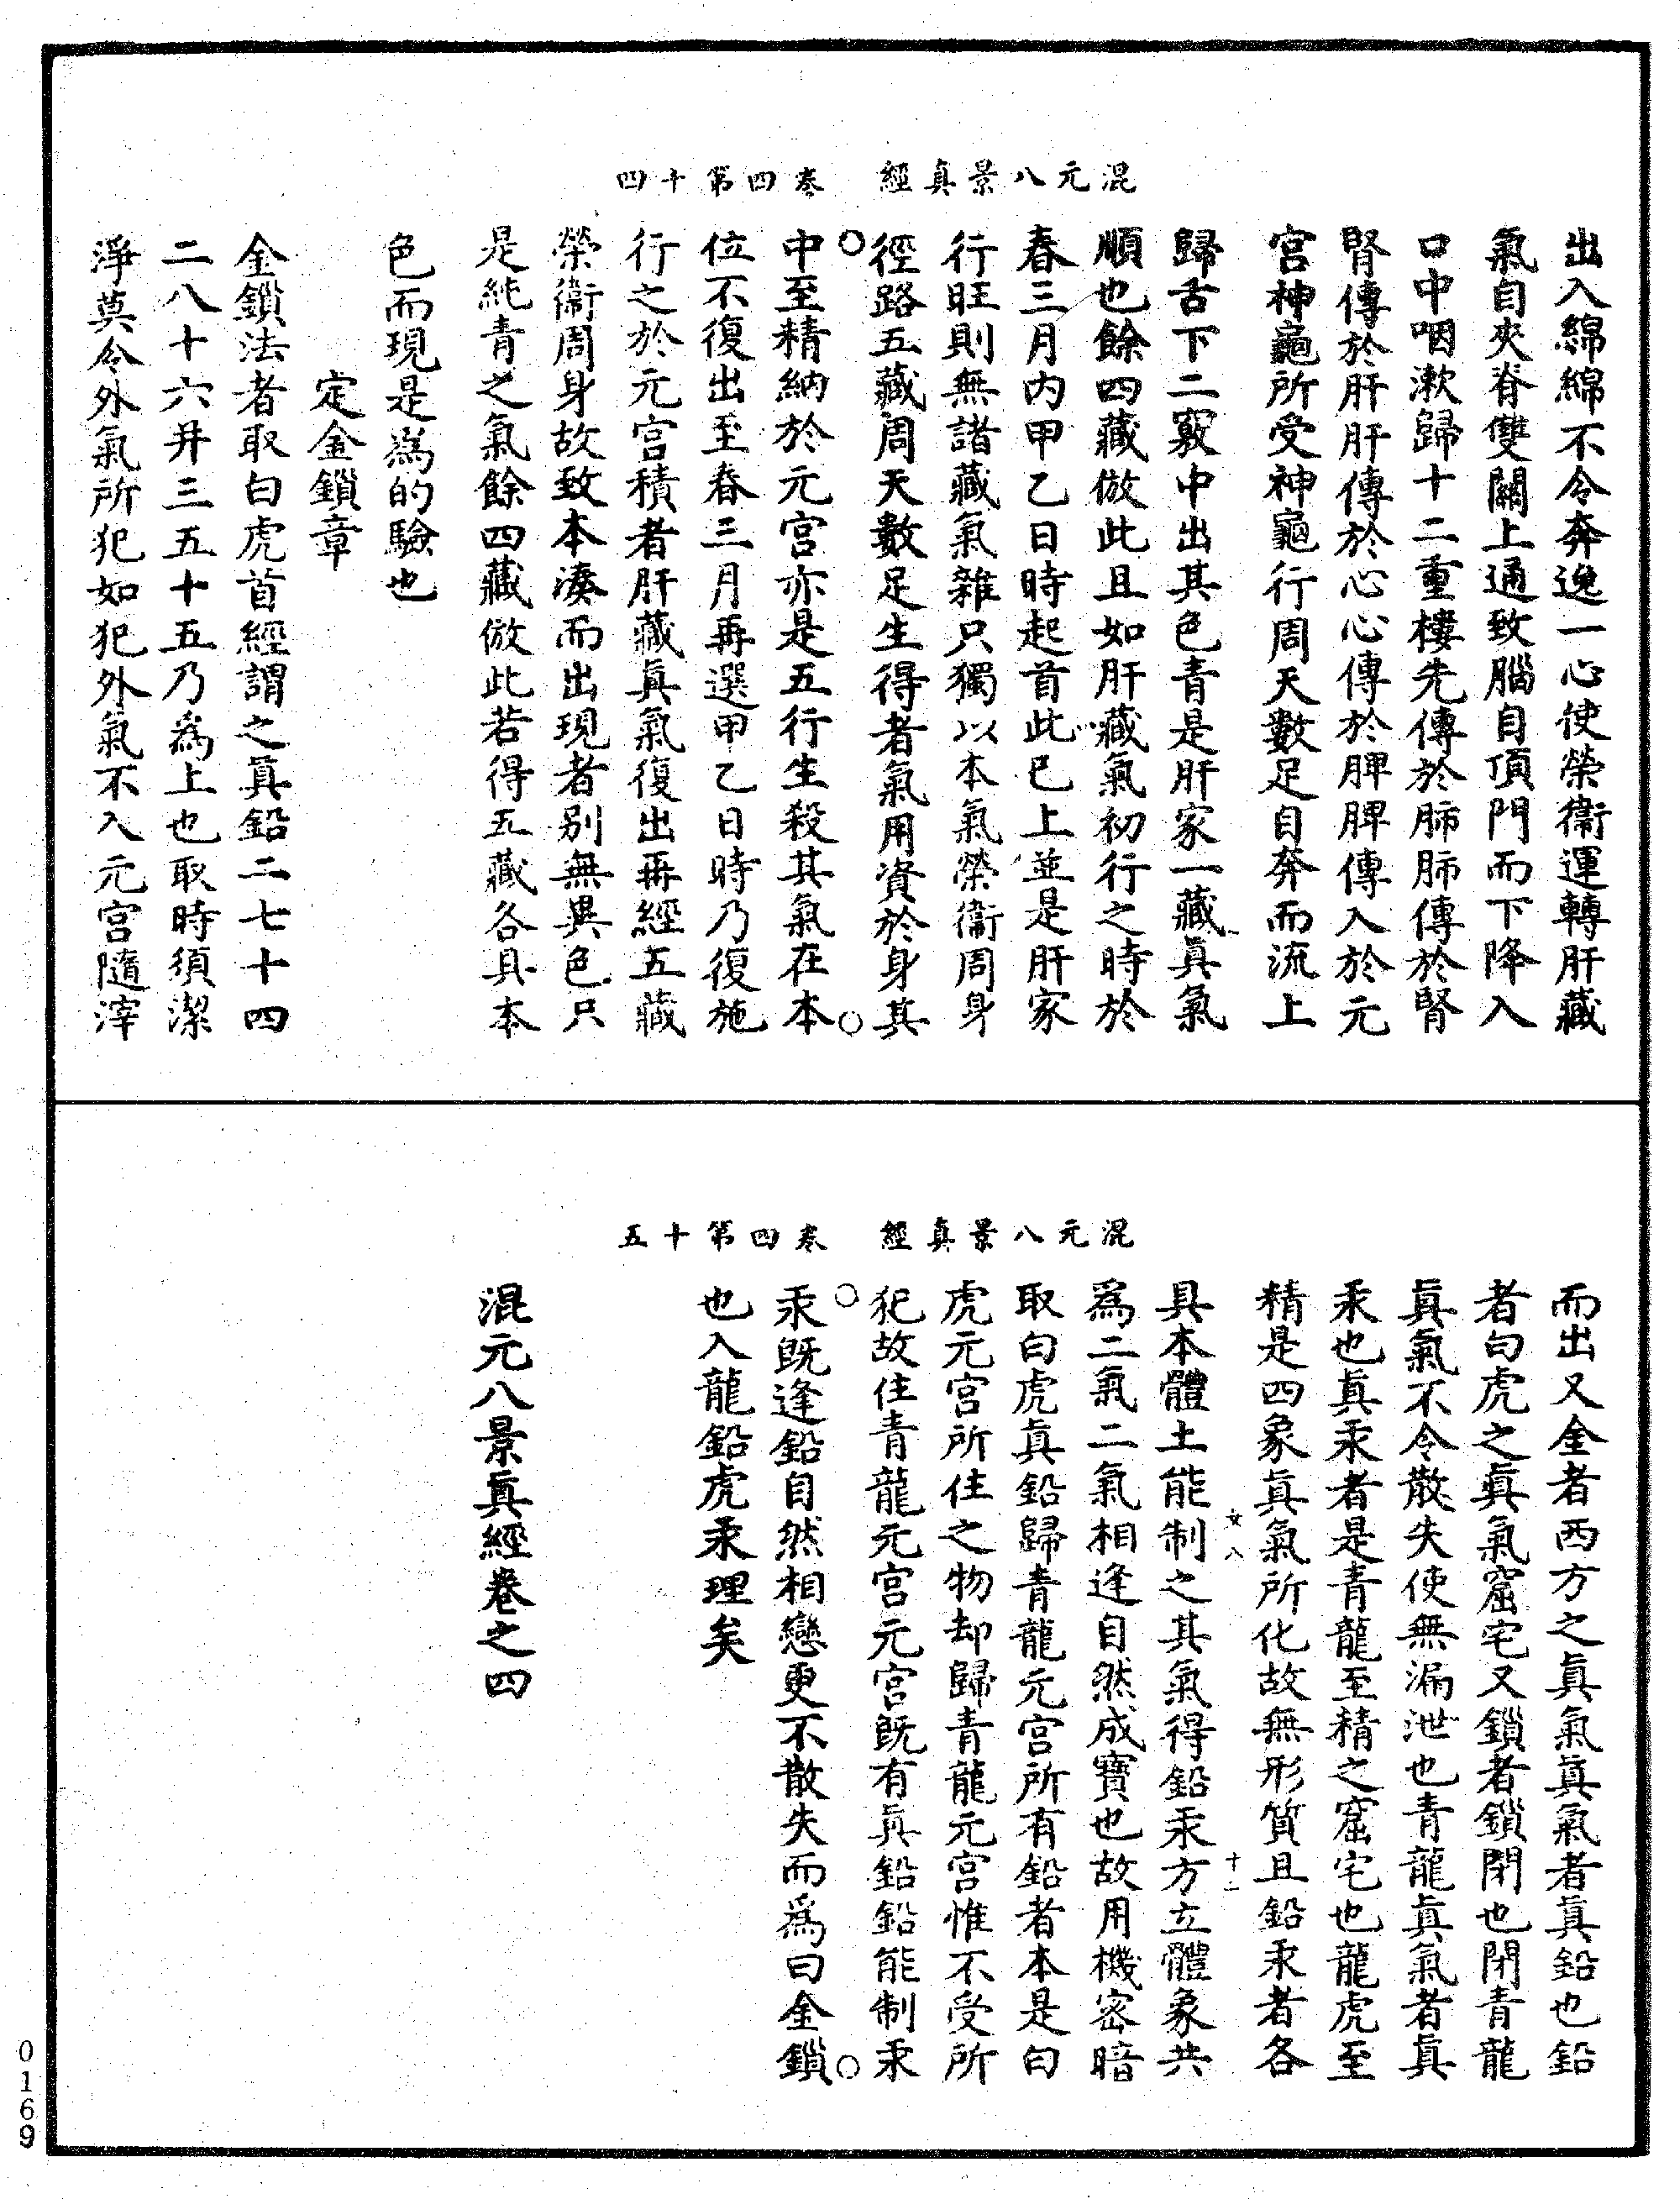 混元八景真經　卷四第十四
出入綿綿不令奔逸一心使榮衞運轉肝藏
氣自夾脊雙關上通致腦自頂門而下降入
口中咽漱歸十二重樓先傳於肺肺傳於腎
腎傳於肝肝傳於心心傳於脾脾傳入於元
宮神龜所受神龜行周天數足自奔而流上
歸舌下二竅中出其色青是肝家一藏眞氣
順也餘四藏倣此且如肝藏氣初行之時於
春三月内甲乙日時起首此已上並是肝家
行旺則無諸藏氣雜只獨以本氣榮衞周身
徑路五藏周天數足生得者氣用資於身其
中至精納於元宮亦是五行生殺其氣在本
位不復出至春三月再選甲乙日時乃復施
行之於元宮積者肝藏眞氣復出再經五藏
榮衞周身故致本湊而出現者别無異色只
是純青之氣餘四藏倣此若得五藏各具本
色而現是爲的驗也
定金鎖章
金鎖法者取白虎首經謂之眞鉛二七十四
二八十六并三五十五乃爲上也取時須潔
淨莫令外氣所犯如犯外氣不入元宮隨滓
混元八景真經　卷四第十五
而出又金者西方之眞氣眞氣者眞鉛也鉛
者白虎之眞氣窟宅又鎖者鎖閉也閉青龍
眞氣不令散失使無漏泄也青龍眞氣者眞
汞也眞汞者是青龍至精之窟宅也龍虎至
精是四象眞氣所化故無形質且鉛汞者各
女八　十一
具本體土能制之其氣得鉛汞方立體象共
爲二氣二氣相逢自然成寶也故用機密暗
取白虎眞鉛歸青龍元宮所有鉛者本是白
虎元宮所住之物却歸青龍元宮惟不受所
犯故住青龍元宮元宮既有眞鉛鉛能制汞
汞既逢鉛自然相戀更不散失而爲曰金鎖
也入龍鉛虎汞理矣
混元八景眞經卷之四
0169